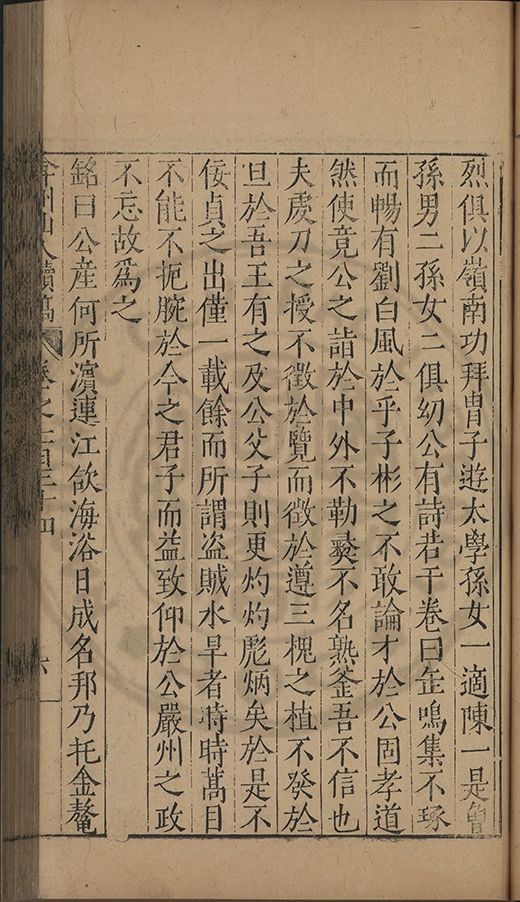 烈俱以嶺南功拜胄子遊太學孫女一適陳一是曾
孫男二孫女二俱幼公有詩若干卷曰缶鳴集不琢
而暢有劉白風於乎子彬之不敢論才於公固孝道
然使竟公之詣於中外不勒彝不名熟釜吾不信也
夫虔刀之授不徵於覽而徵於遵三槐之植不發於
旦於吾王有之及公父子則更灼灼彪炳矣於是不
佞貞之出僅一載餘而所謂盗賊水旱者時時蒿目
不能不扼腕於今之君子而益致仰於公嚴州之政
不忘故爲之
銘曰公産何所濵連江欱海浴日成名邦乃托金鼇
弇州山人續稿 卷之一百三十四 六